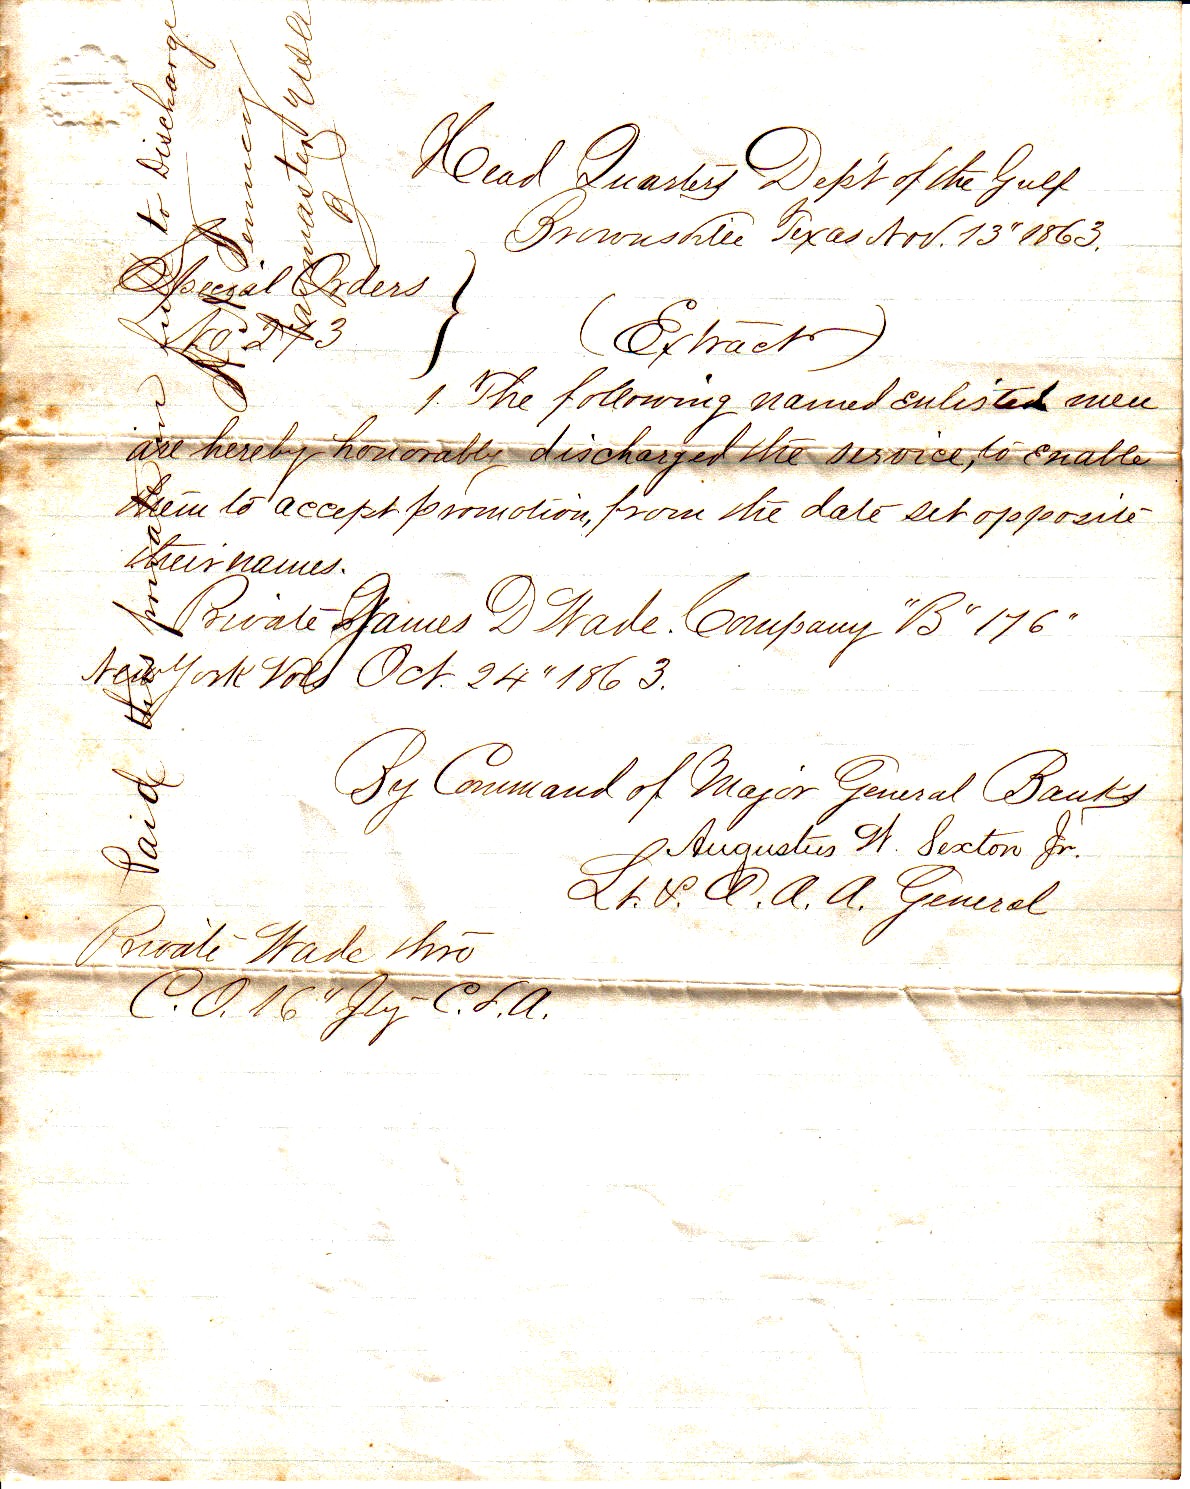 Head Quarters Dep't of the Gulf
Brownsville Texas Nov. 13" 1863.
Special Orders
No 2 3
(Extract)
1. The following named enlisted men
are hereby honorably discharged the service, to enable
them to accept promotion, from the date set opposite
their names.
Private James D Wade. Company "B" 176"
New York Vols Oct. 24" 1863.
By Command of Major General Banks
Augustus W. Sexton Jr.
Lt. & A. A. A. General
Private Wade thro
C. O. 16" Ify C. d'A.
Paid this private in full to Discharge
Paymaster USA